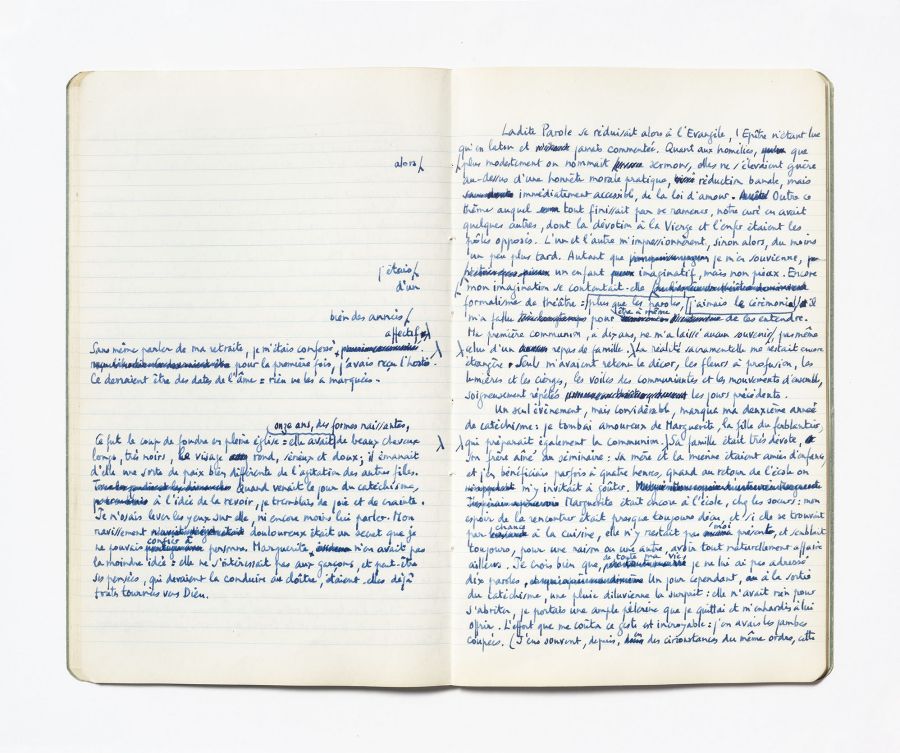 alors/
j'étais/
d'un
bien des années/
affectif
Sans même parler de ma retraite, je m'étais confessé,
pour la première fois, j'avais reçu l'hostie.
Ce devraient être des dates de l'âme : rien ne les a marquées.
onze ans, des formes naissantes,
Ce fut le coup de foudre en pleine église : elle avait de beaux cheveux
longs, très noirs, le visage rond, sérieux et doux ; il émanait
d'elle une sorte de paix bien différente de l'agitation des autres filles.
Quand venait le jour du catéchisme,
à l'idée de la revoir, je tremblais de joie et de crainte.
Je n'osais lever les yeux sur elle, ni encore moins lui parler. Mon
ravissement douloureux était un secret que je
confier à
ne pouvais personne. Marguerite n'en avait pas
la moindre idée : elle ne s'intéressait pas aux garçons, et peut-être
ses pensées, qui devaient la conduire au cloître, étaient-elles déjà
toutes tournées vers Dieu.
Ladite Parole se réduisait alors à l'Evangile, l'Epître n'étant lue
qu'en latin et jamais commentée. Quant aux homélies, que
plus modestement on nommait sermons, elles ne s'élevaient guère
au-dessus d'une honnête morale pratique, réduction banale, mais
immédiatement accessible, de la loi d'amour. Outre ce
thème auquel tout finissait par se ramener, notre curé en avait
quelques autres, dont la dévotion à la Vierge et l'enfer étaient les
pôles opposés. L'un et l'autre m'impressionnèrent, sinon alors, du moins
un peu plus tard. Autant que je m'en souvienne,
un enfant imaginatif, mais non pieux. Encore
mon imagination se contentait-elle
formalisme de théâtre : plus que les paroles, j'aimais le cérémonial. Il
être à même
m'a fallu pour de les entendre.
Ma première communion, à dix ans, ne m'a laissé aucun souvenir/ pas même
celui d'un repas de famille. La réalité sacramentelle me restait encore
étrangère. Seuls m'avaient retenu le décor, les fleurs à profusion, les
lumières et les cierges, les voiles des communiantes et les mouvements d'ensemble,
soigneusement répétés les jours précédents.
Un seul événement, mais considérable, marqua ma deuxième année
de catéchisme : je tombai amoureux de Marguerite, la fille du ferblantier,
qui préparait également la communion. Sa famille était très dévote,
son frère aîné au séminaire : sa mère et la mienne étaient amies d'enfance,
et j'en bénéficiais parfois à quatre heures, quand au retour de l'école on
m'y invitait à goûter.
Marguerite était encore à l'école, chez les sœurs : mon
espoir de la rencontrer était presque toujours déçu, et si elle se trouvait
chance moi
par à la cuisine, elle n'y restait pas présente, et semblait
toujours, pour une raison ou une autre, avoir tout naturellement affaire
de toute ma vie,
ailleurs. Je crois bien que, je ne lui ai pas adressé
dix paroles, Un jour cependant, à la sortie
du catéchisme, une pluie diluvienne la surprit : elle n'avait rien pour
s'abriter, je portais une ample pèlerine que je quittai et m'enhardis à lui
offrir. L'effort que me coûta ce geste est incroyable : j'en avais les jambes
coupées. (J'eus souvent, depuis, des circonstances du même ordre, cette